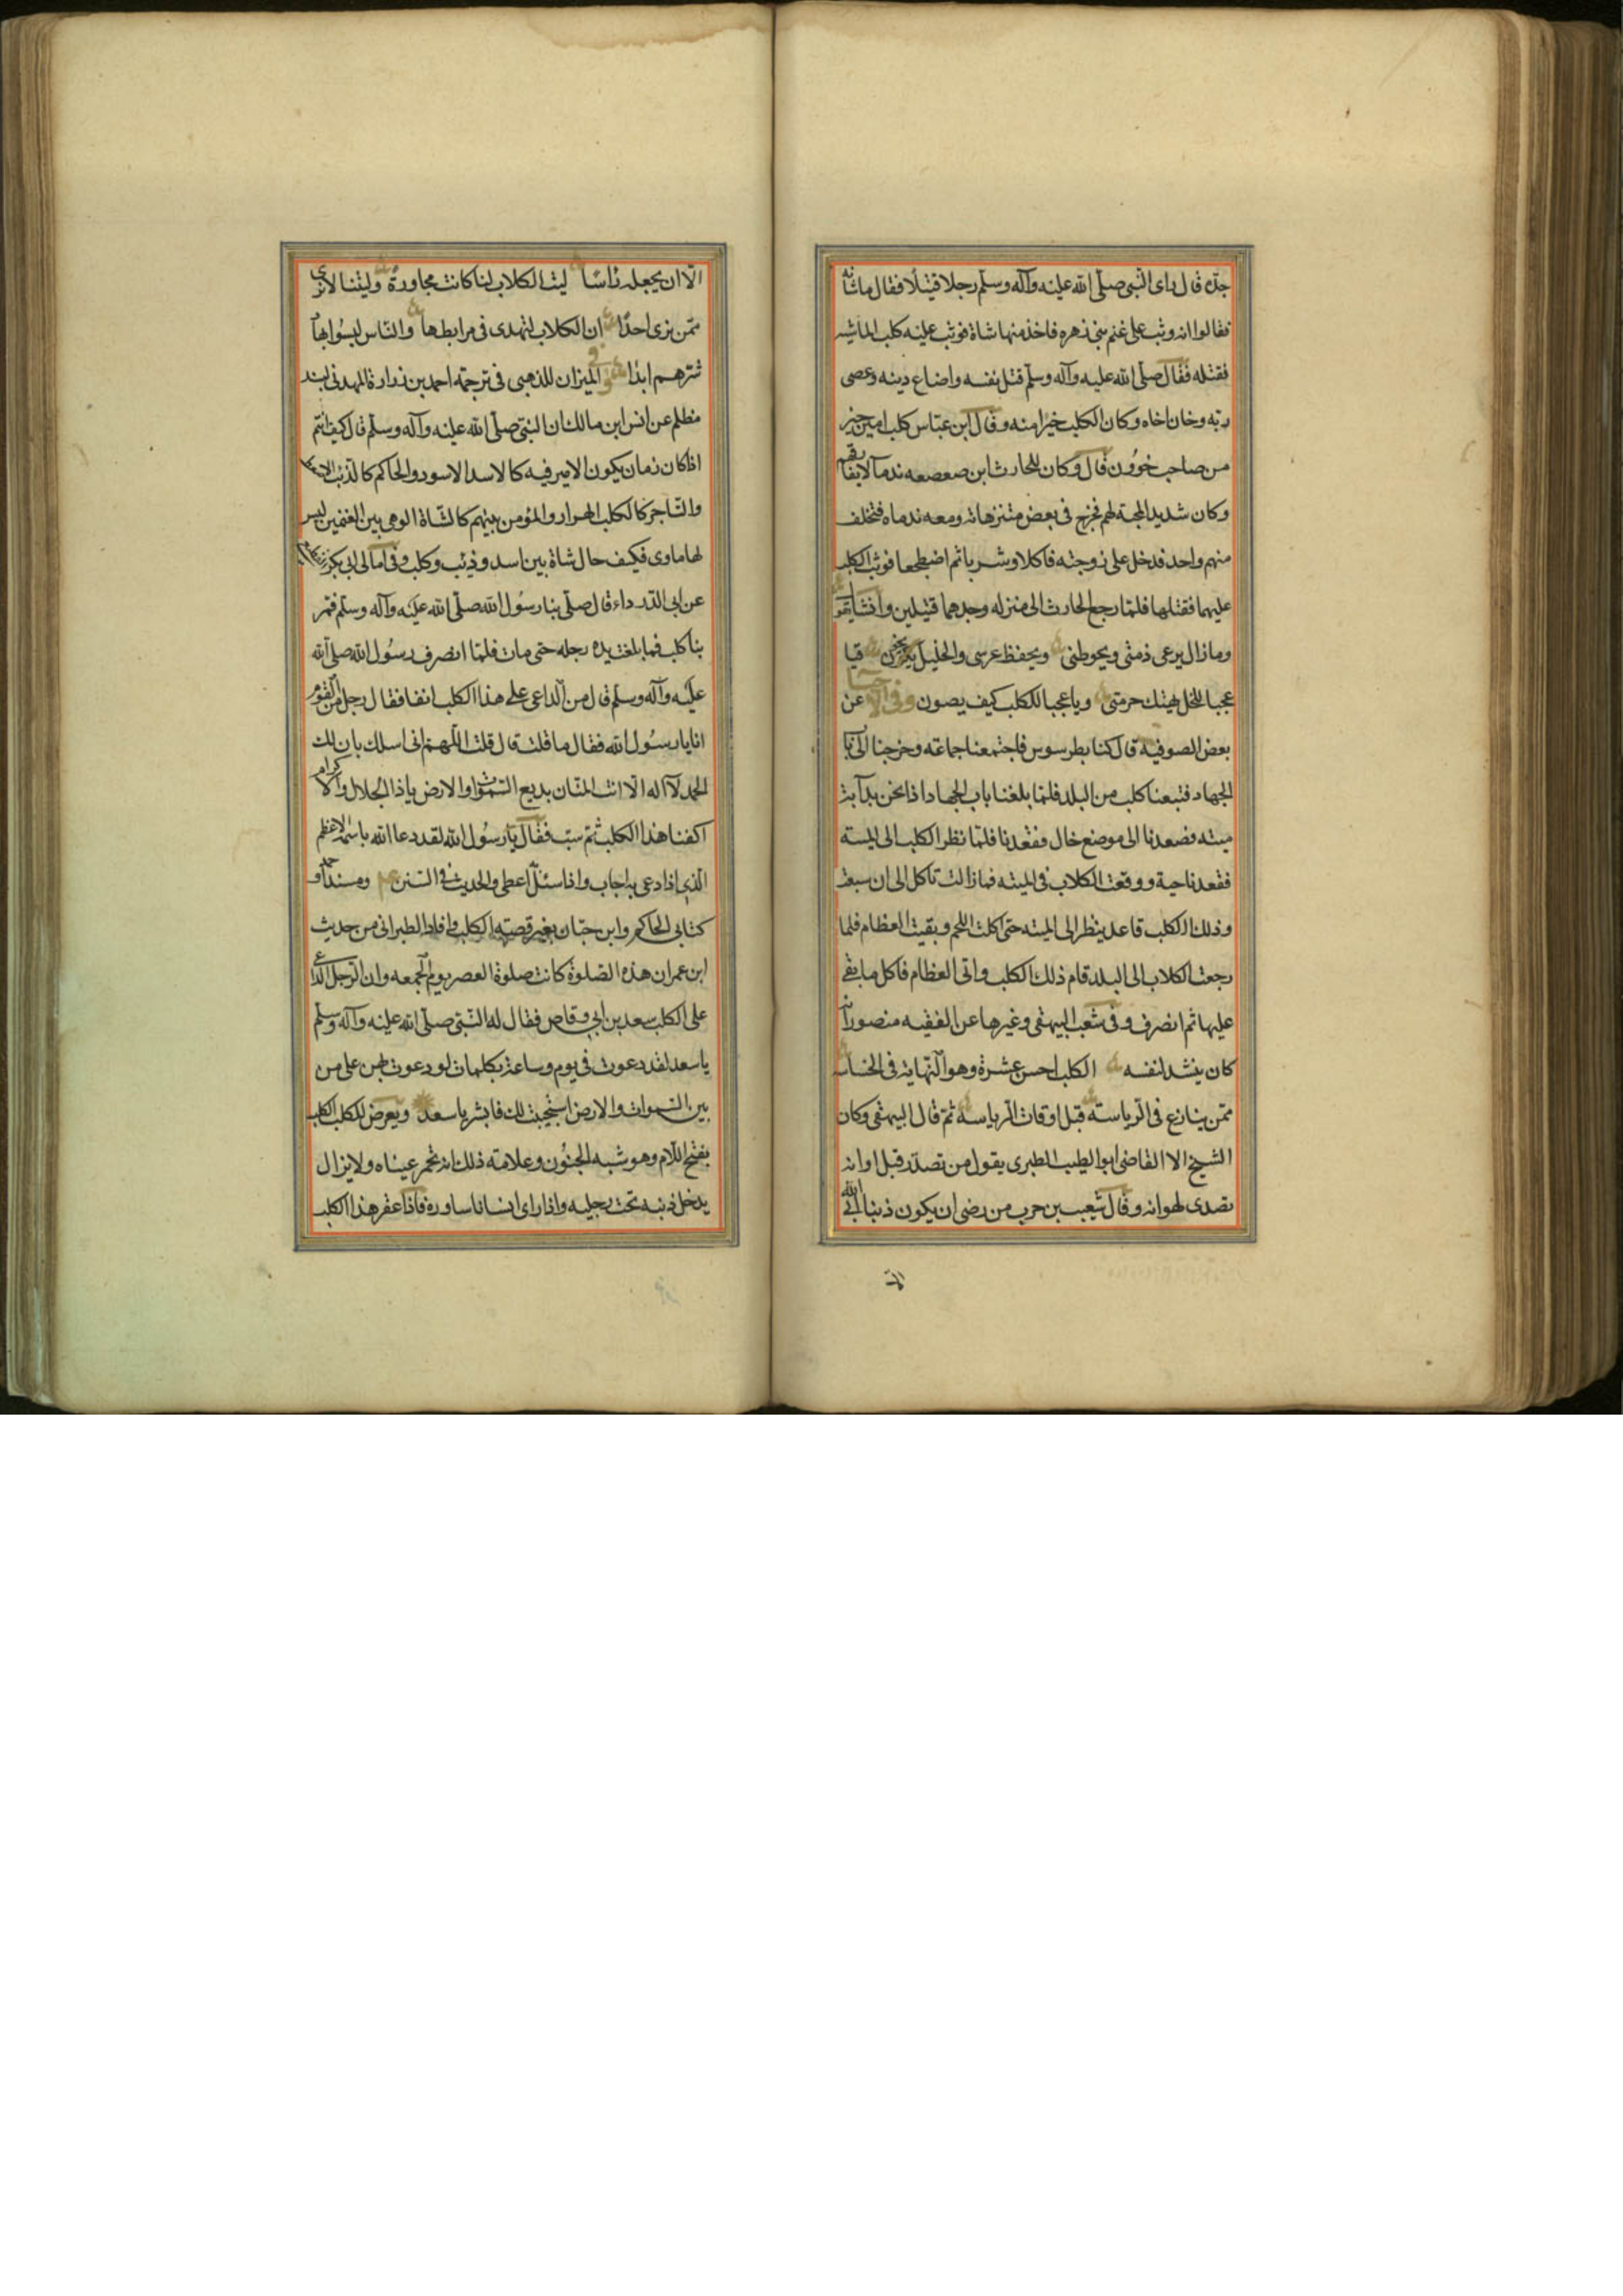 جده قال رای النبی صلی الله علیه وآله وسلم رجلا قتیلا فقال ماشانه
فقالوا انه وثب علی غنم بنی زهره فاخذ منها شاة فوثب علیه کلب الماشیه
فقتله فقال صلی الله علیه وآله وسلم قتل نفسه واضاع دینه وعصی
ربه وخان اخاه وکان الکلب خیرا منه وقال ابن عباس کلب امین خیر
من صاحب خوون قال وکان للحارث ابن صعصعه ندمآ لایفارقهم
وکان شدید المحبة لهم فخرج فی بعض متنزهاته ومعه ندماه فتخلف
منهم واحد فدخل علی زوجته فاکلا وشربا ثم اضطجعا فوثب الکلب
علیهما فقتلهما فلما رجع الحارث الی منزله وجدهما قتیلین وانشا یقول
ومازال یرعی ذمتی ویحوطنی ویحفظ عرسی والخلیل یخون فیا
عجبا للخل یهتک حرمتی ویاعجبا للکلب کیف یصون وفی الاحیا عن
بعض الصوفیة قال کنا بطرسوس فاجتمعنا جماعة وخرجنا الی باب
الجهاد فتبعنا کلب من البلد فلما بلغنا باب الجهاد اذا نحن بدآبة
میته فصعدنا الی موضع خال فقعدنا فلما نظر الکلب الی المیته
فقعد ناحیة ووقعت الکلاب فی المیته فمازالت تاکل الی ان سبعت
وذلک الکلب قاعد ینظر الی المیته حتی اکلت اللحم وبقیت العظام فلما
رجعت الکلاب الی البلد قام ذلک الکلب واتی العظام فاکل مابقی
علیها ثم انصرف وفی شعب البیهقی وغیرها عن الفقیه منصور انه
کان ینشد لنفسه الکلب احسن عشرة وهو النهایة فی الخساسه
ممن ینازع فی الریاسته قبل اوقات الریاسه ثم قال البیهقی وکان
الشیخ الا القاضی ابوالطیب الطبری یقول من تصدر قبل اوانه
تصدی لهوانه وقال شعیب بن حرب من رضی ان یکون ذنبا ابی الله
الا
الا ان یجعله راسا لیت الکلاب لنا کانت مجاورة ولیتنا لانری
ممن نری احدا ان الکلاب لتهدی فی مرابطها والناس لیسوا بهاد
شرهم ابدا وفی المیزان للذهبی فی ترجمة احمد بن زرارة المدنی بسند
مظلم عن انس ابن مالک ان النبی صلی الله علیه وآله وسلم قال کیف انتم
اذا کان زمان یکون الامیر فیه کالاسد الاسود والحاکم کالذئب الامعط
والتاجر کالکلب الهرار والمؤمن بینهم کالشاة الوهی بین الغنمین لیس
لها ماوی فکیف حال شاة بین اسد وذئب وکلب وفی امالی ابی بکر
عن ابی الدرداء قال صلی بنا رسول الله صلی الله علیه وآله وسلم فمر
بنا کلب فما بلغت یده رجله حتی مات فلما انصرف رسول الله صلی الله
علیه وآله وسلم قال من الداعی علی هذا الکلب انفا فقال رجل من القوم
انا یارسول الله فقال ما قلت قال قلت اللهم انی اسلک بان لک
الحمد لااله الا انت المنان بدیع السموات والارض یاذا الجلال والاکرام
اکفنا هذا الکلب ثم سبت فقال یارسول الله لقد دعا الله باسمه الاعظم
الذی اذا دعی به اجاب واذا سئل اعطی والحدیث فی السنن ومسند احمد و
کتابی الحاکم وابن حبان بغیر قصته الکلب وافاد الطبرانی من حدیث
ابن عمر ان هذه الصلوة کانت صلوة العصر یوم الجمعه وان الرجل الداعی
علی الکلب سعد بن ابی وقاص فقال له النبی صلی الله علیه وآله وسلم
یاسعد لقد دعوت فی یوم وساعة بکلمات لو دعوت بهن علی من
بین السموات والارض استجیبت لک فابشر یاسعد ویعرض للکلب الکلب
بفتح اللام وهو شبه الجنون وعلامة ذلک انه تحمر عیناه ولایزال
یدخل ذنبه تحت رجلیه واذا رای انسانا ساوره فاذا عقر هذا الکلب